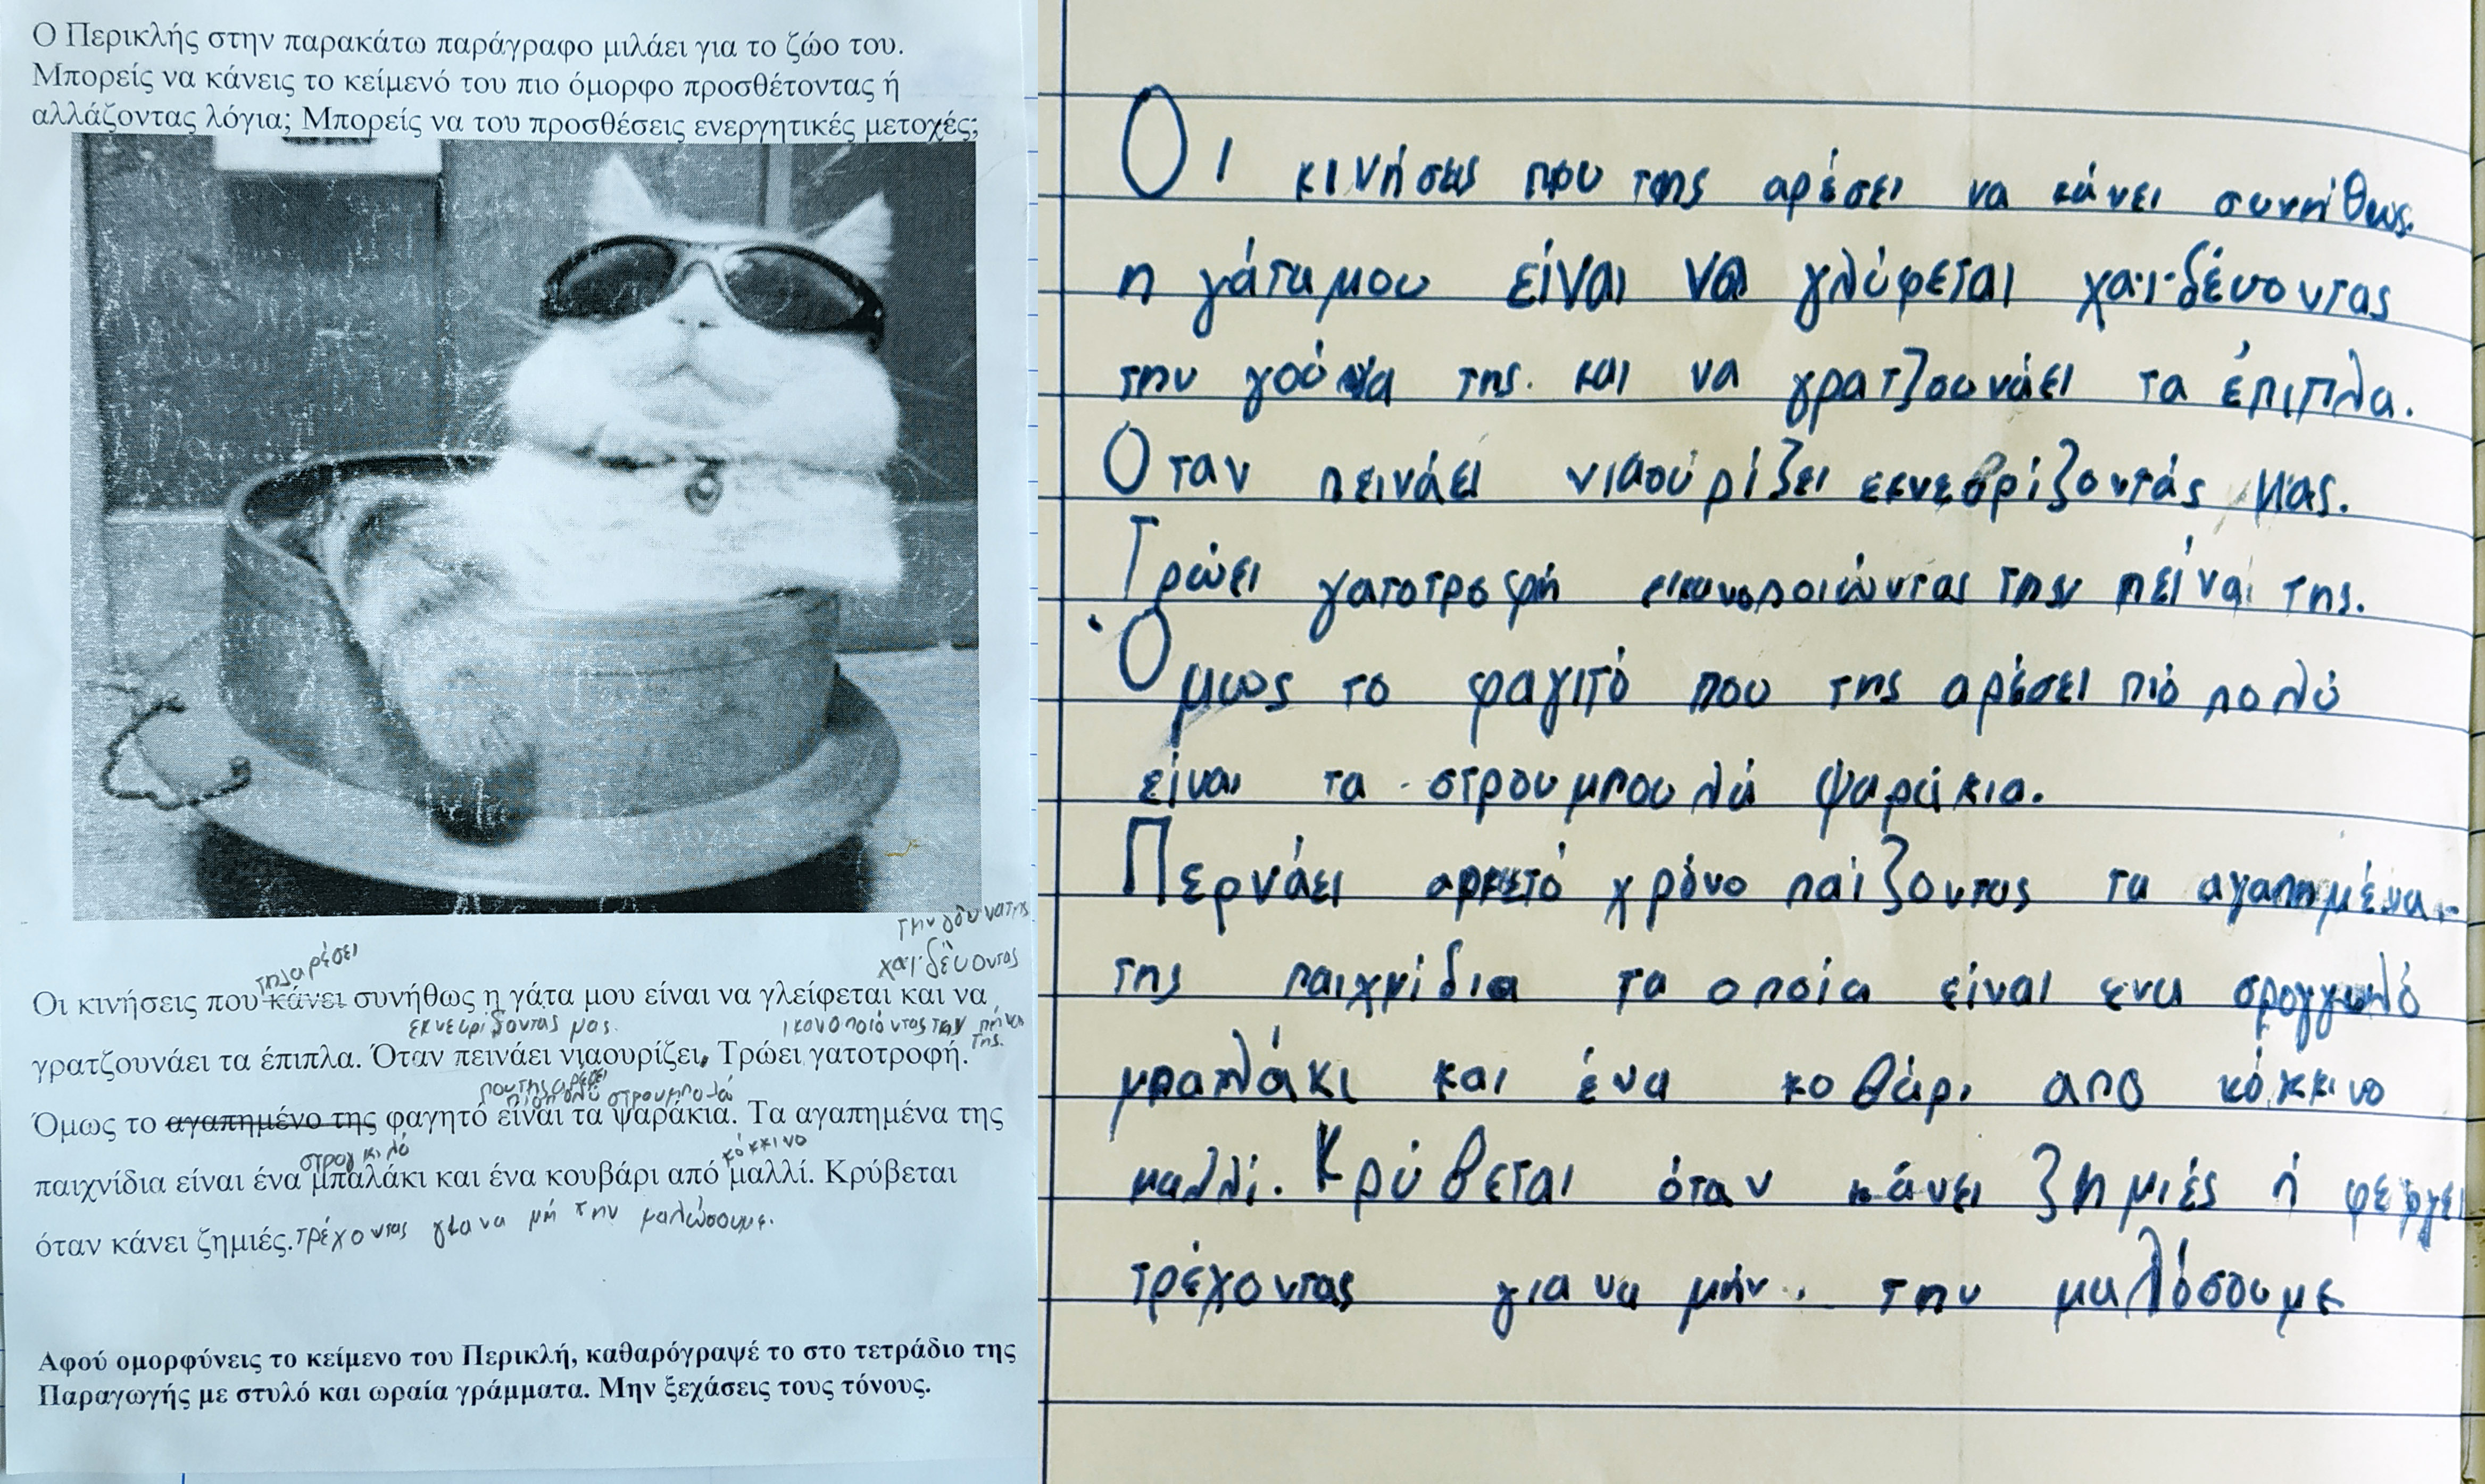 Ο Περικλής στην παρακάτω παράγραφο μιλάει για το ζώο του.
Μπορείς να κάνεις το κείμενό του πιο όμορφο προσθέτοντας ή
αλλάζοντας λόγια; Μπορείς να του προσθέσεις ενεργητικές μετοχές;
την γούνα της
της αρέσει
χαϊδεύοντας
Οι κινήσεις που κάνει συνήθως η γάτα μου είναι να γλείφεται και να
εκνευρίζοντάς μας.
ικονοποιόντας την πήνα
της.
γρατζουνάει τα έπιπλα. Όταν πεινάει νιαουρίζει. Τρώει γατοτροφή.
που της αρέσει
πιο πολύ στρουμπολά
Όμως το αγαπημένο της φαγητό είναι τα ψαράκια. Τα αγαπημένα της
στρογκιλό
κόκκινο
παιχνίδια είναι ένα μπαλάκι και ένα κουβάρι από μαλλί. Κρύβεται
όταν κάνει ζημιές. τρέχοντας για να μή την μαλώσουμε.
Αφού ομορφύνεις το κείμενο του Περικλή, καθαρόγραψέ το στο τετράδιο της
Παραγωγής με στυλό και ωραία γράμματα. Μην ξεχάσεις τους τόνους.
Οι κινήσεις που της αρέσει να κάνει συνήθως
η γάτα μου είναι να γλύφεται χαϊδέυοντας
την γούνα της. και να γρατζουνάει τα έπιπλα.
Οταν πεινάει νιαούρίζει εκνεβρίζοντάς μας.
Τρώει γατοτροφή εικανοποιώντας την πείνα της.
Όμως το φαγιτό που της αρέσει πιό πολύ
είναι τα στρουμπουλά ψαράκια.
Περνάει αρκετό χρόνο παίζοντας τα αγαπημένα
της παιχνίδια τα οποία είναι ενα σρογγυλό
μπαλάκι και ένα κοβάρι απο κόκκινο
μαλλί. Κρύβεται όταν κάνει ζημιές ή φεργει
τρέχοντας για να μήν την μαλόσουμε